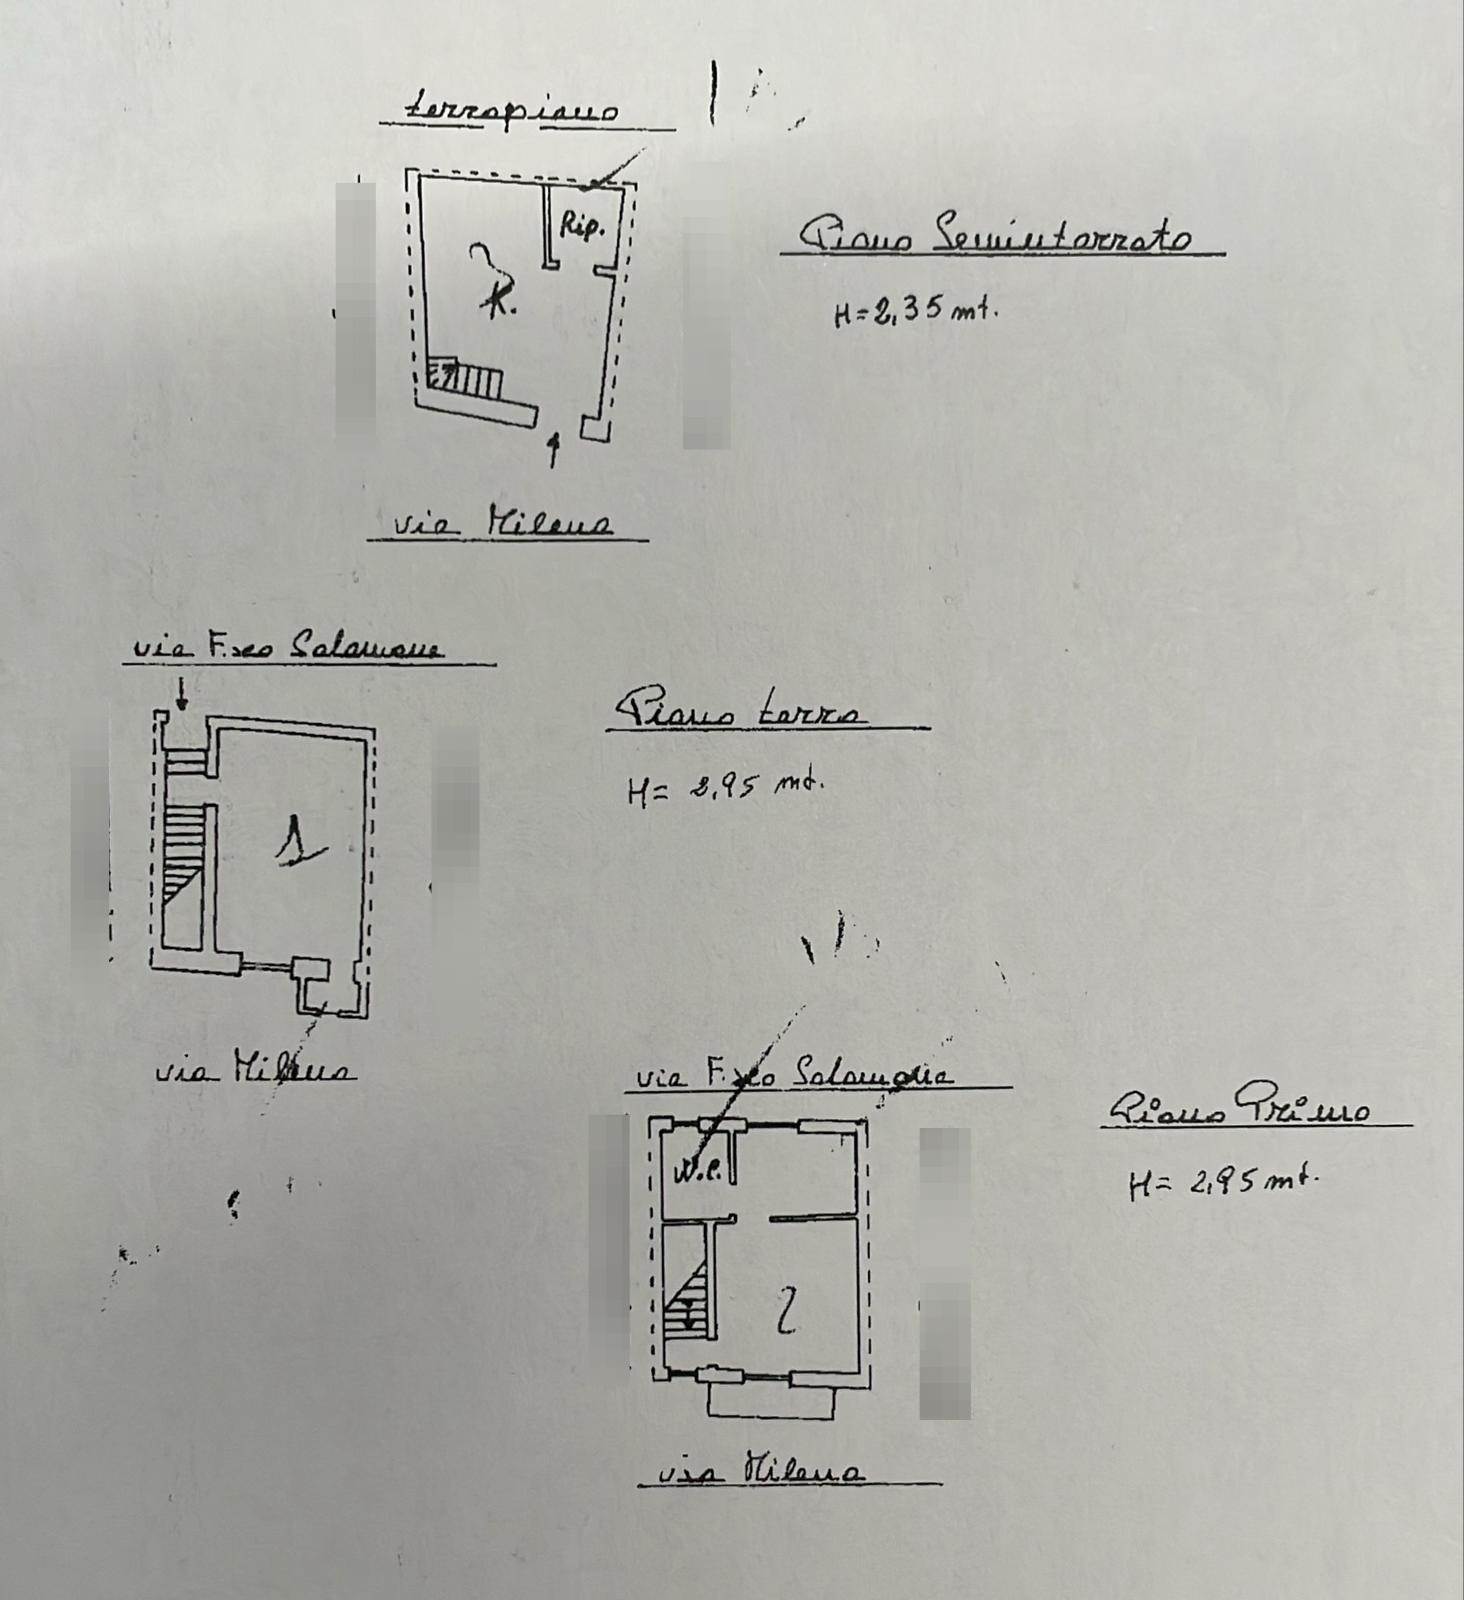 terrapieno
Rip.
K.
Piano Seminterrato
H=2,35 mt.
via Milena
via F.sco Salamone
1
Piano terra
H= 2,95 mt.
via Milena
via F.sco Salamone
W.C.
2
Piano Primo
H= 2,95 mt.
via Milena